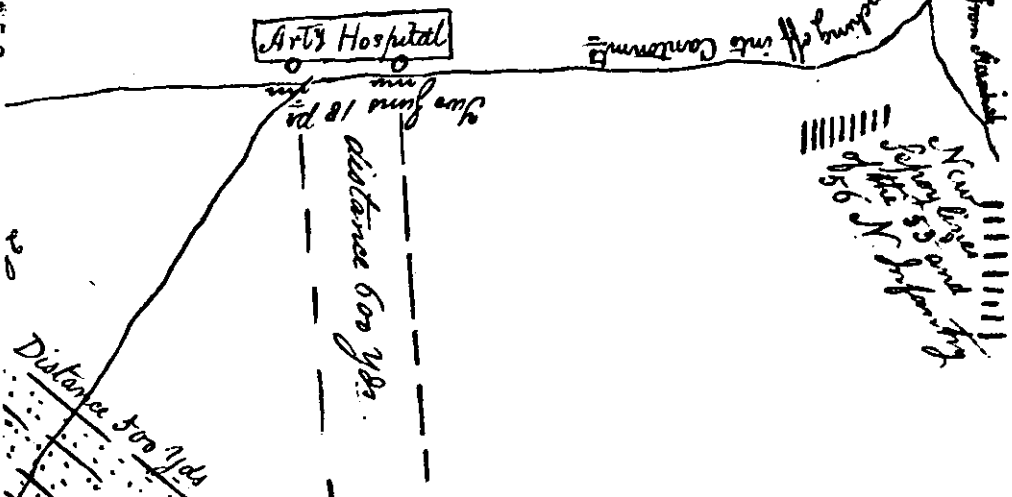 Arty Hospital
ching off into Cantonmts
from
Two Guns 18 pr
distance 600 Yds.
New
Sepoy lines
of the 53 and
56 N Infantry
Distance 500 Yds